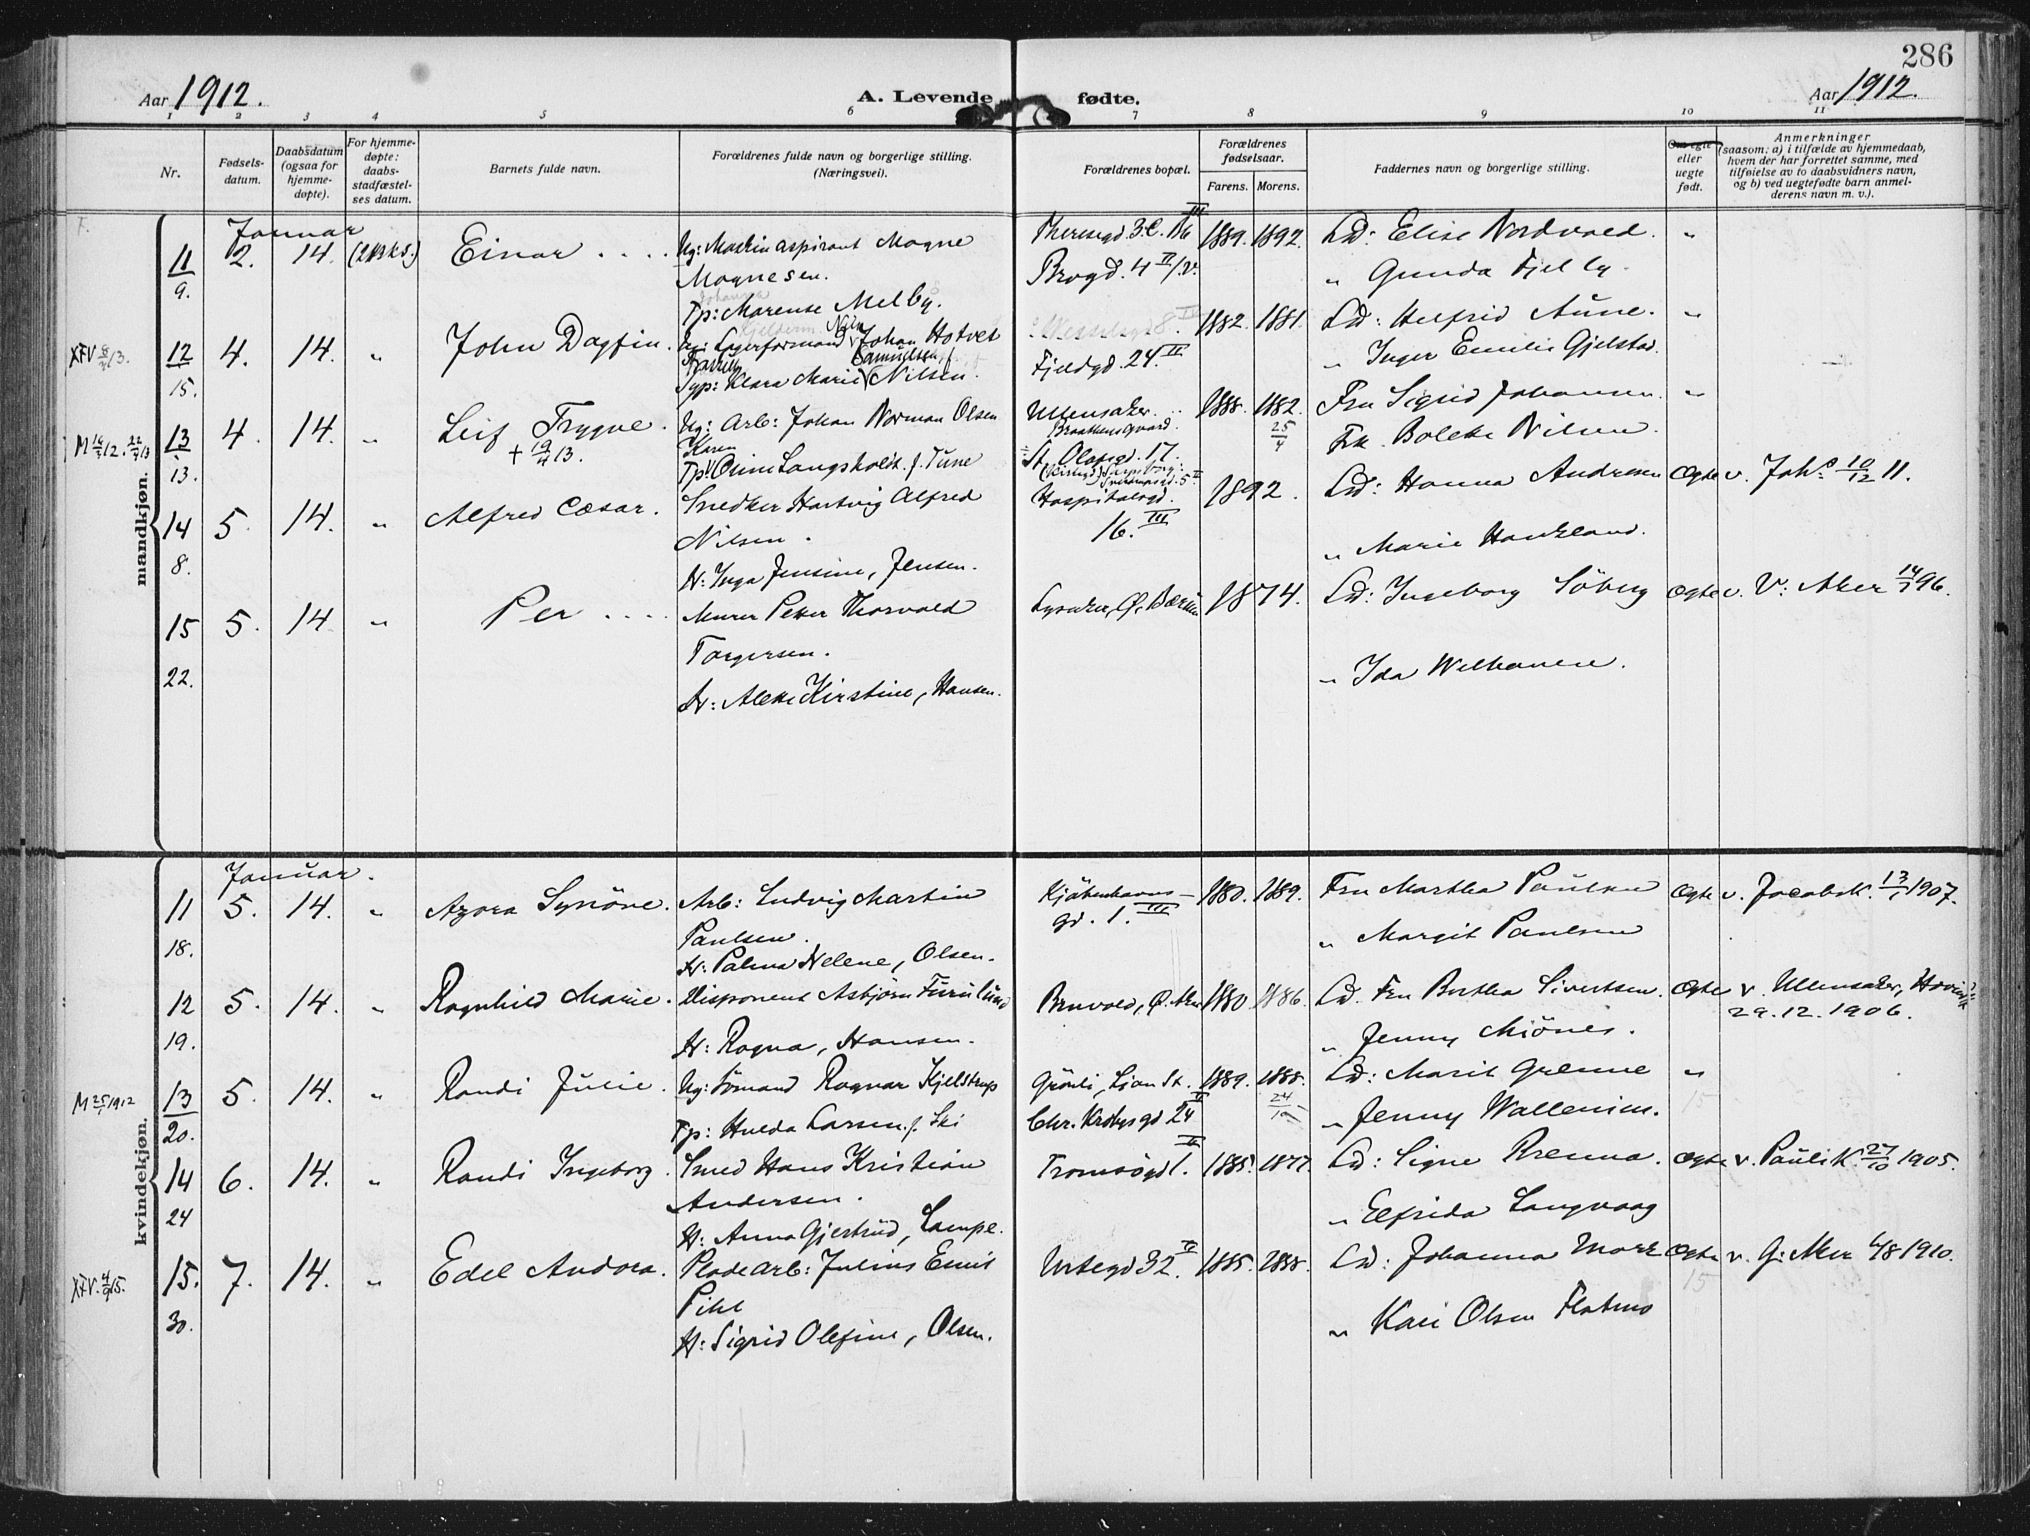 286
Aar 1912. A. Levende fødte. Aar 1912.
1 2 3 4 5 6 7 8 9 10 11
Nr.
Fødsels-
datum.
Daabsdatum
(ogsaa for
hjemme-
døpte).
For hjemme-
døpte:
daabs-
stadfæstel-
ses datum.
Barnets fulde navn.
Forældrenes fulde navn og borgerlige stilling.
(Næringsvei).
Forældrenes bopæl.
Forældrenes
fødselsaar.
Farens. Morens.
Faddernes navn og borgerlige stilling.
Om egte
eller
uegte
født.
Anmerkninger
(saasom: a) i tilfælde av hjemmedaab,
hvem der har forrettet samme, med
tilføielse av to daabsvidners navn,
og b) ved uegtefødte barn anmel-
derens navn m. v.).
mandkjøn.
Januar
11 2. 14. Einar . . . . Ug: Maskinaspirant Magne Theresegd. 3. C. 1889. 1892. Ld: Elise Nordvold. "
9. Magnesen. Brogd. 4 II/v. " Gunda Fjelby.
Tp: Marense Melby.
12 4. 14. " John Dagfin. Ug: Lagerformand Johan Hotvet 1882. 1881. Ld: Helfrid Aune. "
15. Syp: Klara Marie Nilsen. Fjeldgd. 24 II " Inger Emilie Gjelstad.
M 12.
13 4. 14. " Leif Trygve. Ug: Arb: Johan Norman Olsen Ullensaker. 1888. 1882. Fru Sigrid Johansen. "
13. + 19/4 13. Karen Braathensgaard. 25/4 Frk. Bolette Nilsen.
Langsholdt. f. Tune St. Olafsgd. 17.
14 5. 14. " Alfred Cæsar. Snedker Hartvig Alfred Hospitalsgd. 1892. Ld: Hanna Andresen Ogte v. Joh. 10/12 11.
8. Nilsen. 16. III " Marie Haukland.
H: Inga Jensine, Jensen.
15 5. 14 " Per . . . . Murer Peter Thorvald Lysaker, Ø. Bærum 1874. Ld: Ingeborg Söberg Ogte v. V: Aker 14/ 96.
22. Torgersen. " Ida Welhaven.
H: Alette Kirstine, Hansen.
kvindekjøn.
Januar.
11 5. 14. " Azora Synöve. Arb: Ludvig Martin Kjöbenhavns- 1880. 1889. Fru Martha Paulsen Ogte v. Jacobsk. 13/ 1907.
18. Paulsen. gd. 1. III " Margit Paulsen
H: Palma Helene, Olsen.
12 5. 14. " Ragnhild Marie. Disponent Asbjörn Furulund Bruvold, Ø. Aker 1880 1886. Ld. Fru Bertha Sivertsen. Ogte v. Ullensaker, Hovind
19. H: Ragna, Hansen. " Jenny Mjönes. 29.12.1906.
M 25/1 1912
13 5. 14. " Randi Julie. Ug: Sömand Ragnar Kjelstrup Grönli, Ljan St. 1889. 1888. Ld: Marit Grenne "
20. Tp: Hulda Larsen. f. Ski Chr. Krohgs gd 24 II 24/10 " Jenny Wallenius. 15
14 6. 14. " Randi Ingeborg. Smed Hans Kristian Tromsögd 1. II 1885. 1877. Ld: Signe Brenna. Ogte v. Paulik. 27/10 1905.
24 Andersen. " Elfrida Langvaag
H: Anna Gjertrud, Lampe.
15. 7. 14. " Edel Andora. Pladearb: Julius Emil Urtegd 32. IV 1885. 1888. Ld: Johanna Mork Ogte v. G: Aker 6/8 1910.
30. Pihl " Kari Olsen Flatmo 15
H: Sigrid Olefine, Olsen.